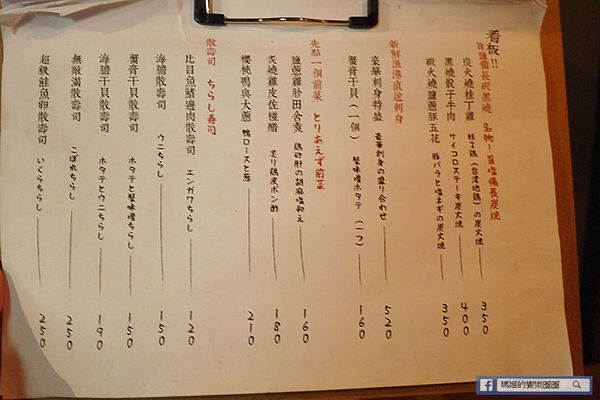 看板!!
旨鹽備長碳黑燒 名物!旨塩備長炭焼
炭火燒桂丁雞 桂丁鶏（台湾地鶏）の炭火焼 350
黑燒骰子牛肉 サイコロステーキ炭火焼 400
碳火燒鹽蔥豚五花 豚バラと塩ネギの炭火焼 350
新鮮漁港直送刺身
豪華刺身特盛 豪華刺身の盛り合わせ 520
蟹膏干貝（一個） 蟹味噌ホタテ（一つ） 160
先點一個前菜 とりあえず前菜
鹽蔥雞胗田舍煮 鶏砂肝の胡麻塩和え 160
炙燒雞皮佐橙醋 炙り鶏皮ポン酢 180
櫻桃鴨臭大蔥 鴨ロースと葱 210
散壽司 ちらし寿司
比目魚鰭邊肉散壽司 エンガワちらし 120
海膽散壽司 ウニちらし 150
蟹膏干貝散壽司 ホタテと蟹味噌ちらし 150
海膽干貝散壽司 ホタテとウニちらし 190
無敵滿散壽司 こぼれちらし 250
超級鮭魚卵散壽司 いくらちらし 250
瑪姬的饗樂圈圈